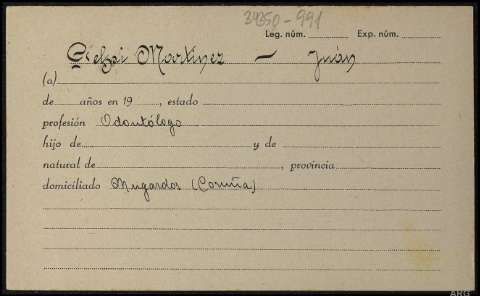 34350-991
Leg. núm. Exp. núm.
Martínez — Juán
(a)
de años en 19 , estado
profesión Odontólogo
hijo de y de
natural de , provincia
domiciliado Mugardos (Coruña)
ARG